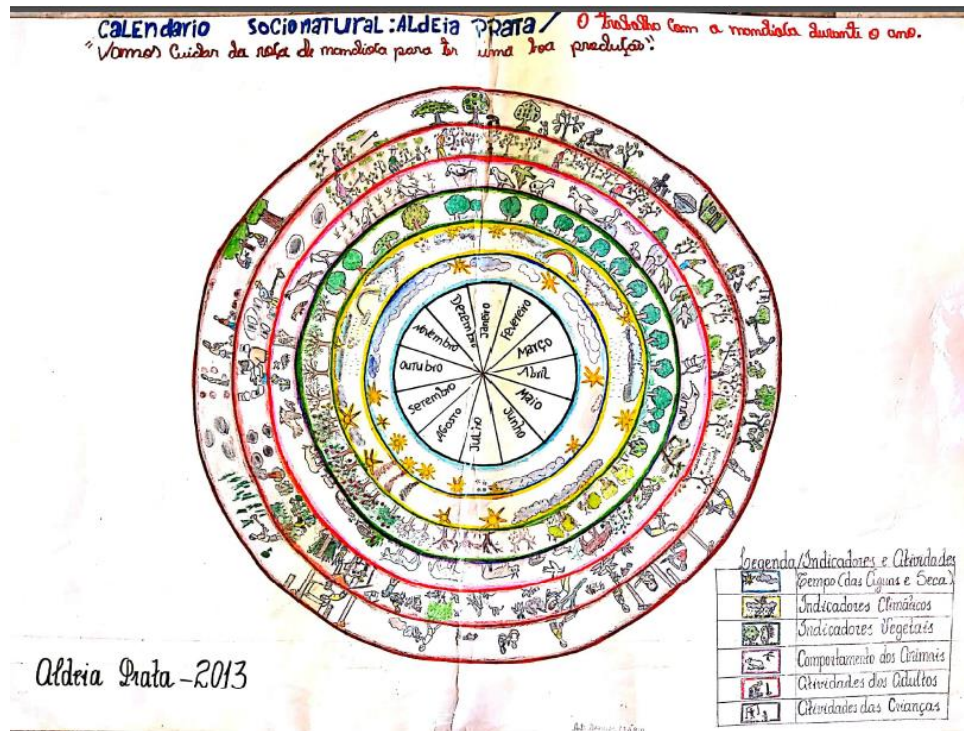 CALENDARIO SOCIONATURAL: ALDEIA PRATA / O trabalho com a mandioca durante o ano.
"Vamos Cuidar da roça de mandioca para ter uma boa produção".
Janeiro
Fevereiro
Março
Abril
Maio
Junho
Julho
Agosto
Setembro
Outubro
Novembro
Dezembro
Legenda/Indicadores e Atividades
Tempo (das Águas e Seca)
Indicadores Climáticos
Indicadores Vegetais
Comportamento dos Animais
Atividades dos Adultos
Atividades das Crianças
Aldeia Prata - 2013